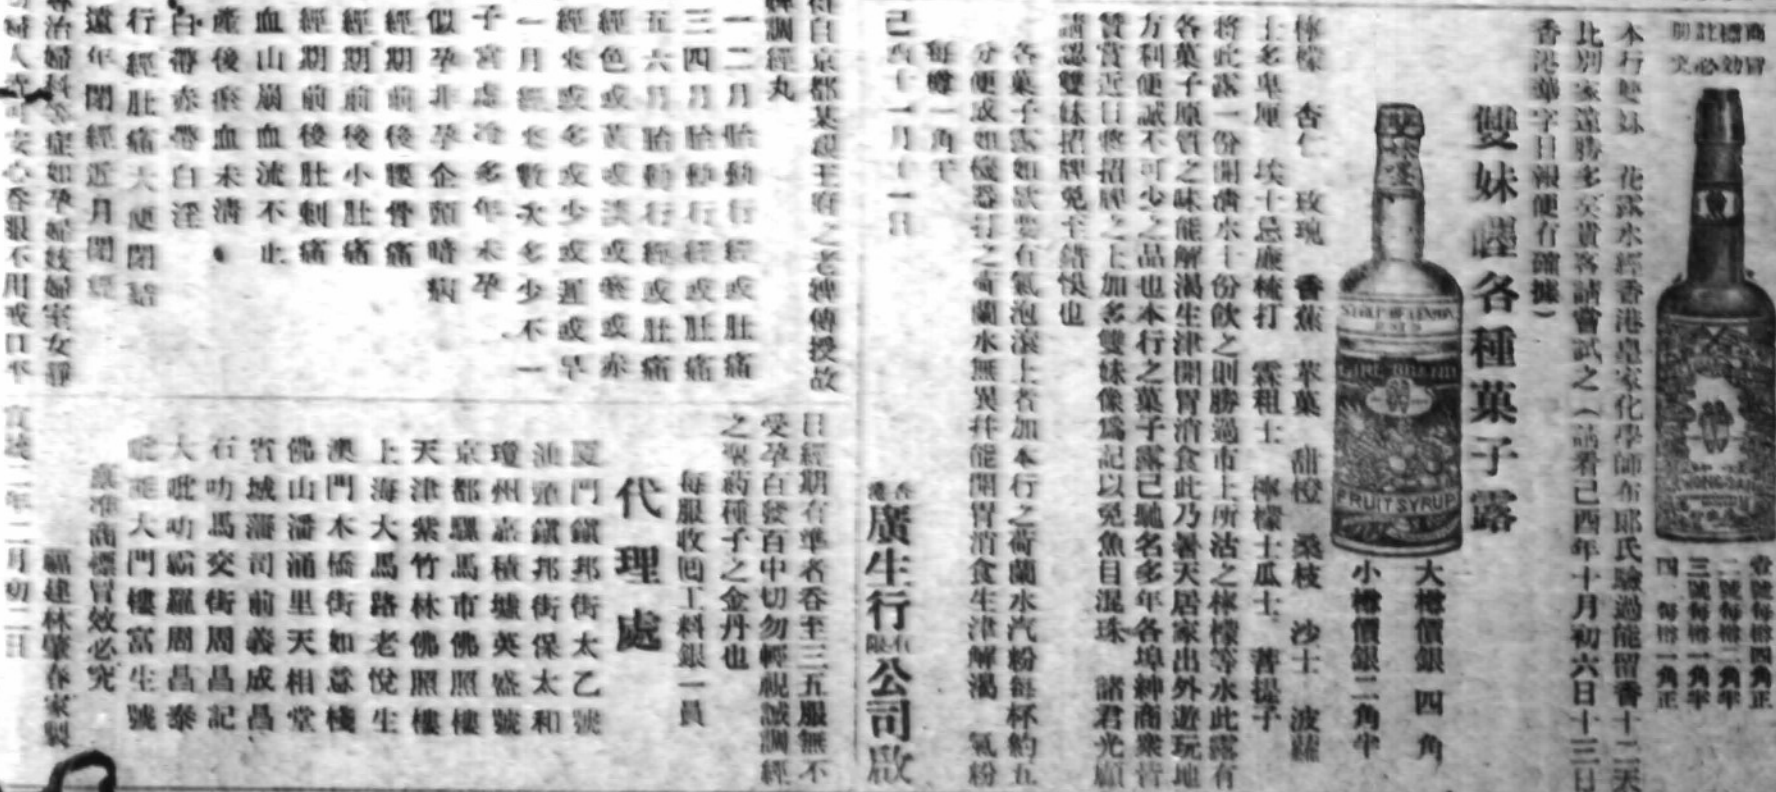 商標註冊
冒効必究
壹號每樽四角正
二號每樽二角半
三號每樽一角半
四 每樽一角正
本行雙妹 花露水經香港皇家化學師布郎氏驗過能留香十二天
比別家遠勝多矣貴客請嘗試之（請看己酉年十月初六日十三日
香港華字日報便有確據）
雙妹嚜各種菓子露
大樽價銀四角
小樽價銀二角半
FRUIT SYRUP
檸檬 杏仁 玫瑰 香蕉 苹菓 甜橙 桑枝 沙士 波蘿
士多卑厘 埃士忌廉梳打 霖租士 檸檬士瓜士 菩提子
將此露一份開凊水十份飲之則勝過市上所沽之檸檬等水此露有
各菓子原質之味能解渴生津開胃消食此乃暑天居家出外遊玩地
方利便誠不可少之品也本行之菓子露已馳名多年各埠紳商衆皆
贊賞近日將招牌之上加多雙妹像爲記以免魚目混珠 諸君光顧
請認雙妹招牌免至錯悞也
各菓子露如欲要有氣泡滾上者加本行之荷蘭水汽粉每杯約五
分便或如機器打之荷蘭水無異幷能開胃消食生津解渴 氣粉
每樽一角半
己酉十一月十一日
香港廣生行有限公司啟
得自京都某親王府之老婢傳授故
婢調經丸
一二月胎動行經或肚痛
三四月胎動行經或肚痛
五六月胎動行經或肚痛
經色或黃或淡或瘀或赤
經來或多或少或遲或早
一月經來數次多少不一
子宮虛冷多年未孕
似孕非孕企頭暗病
經期前後腰骨痛
經期前後小肚痛
經期前後肚刺痛
血山崩血流不止
產後瘀血未清
白帶赤帶白淫
行經肚痛大便閉結
遠年閉經近月閉經
專治婦科各症如孕婦妓婦室女靜
婦人寄可安心吞服不用戒口平
日經期有準者吞至三五服無不
受孕百發百中切勿輕視誠調經
之聖葯種子之金丹也
每服收囘工料銀一員
代理處
厦門鎮邦街太乙號
汕頭鎮邦街保太和
瓊州嘉積墟英盛號
京都騾馬市佛照樓
天津紫竹林佛照樓
上海大馬路老悅生
澳門木橋街如意棧
佛山潘涌里天相堂
省城藩司前義成昌
石叻馬交街周昌記
大吡叻霸羅周昌泰
吡能大門樓富生號
稟准商標冒效必究
福建林肇春家製
宣統二年二月初二日